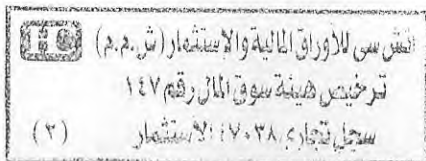 اتش سى للاوراق المالية والإستثمار (ش.م.م)
ترخيص هيئة سوق المال رقم ١٤٧
سجل تجارى ١٧٠٣٨ الاستثمار
(٣)